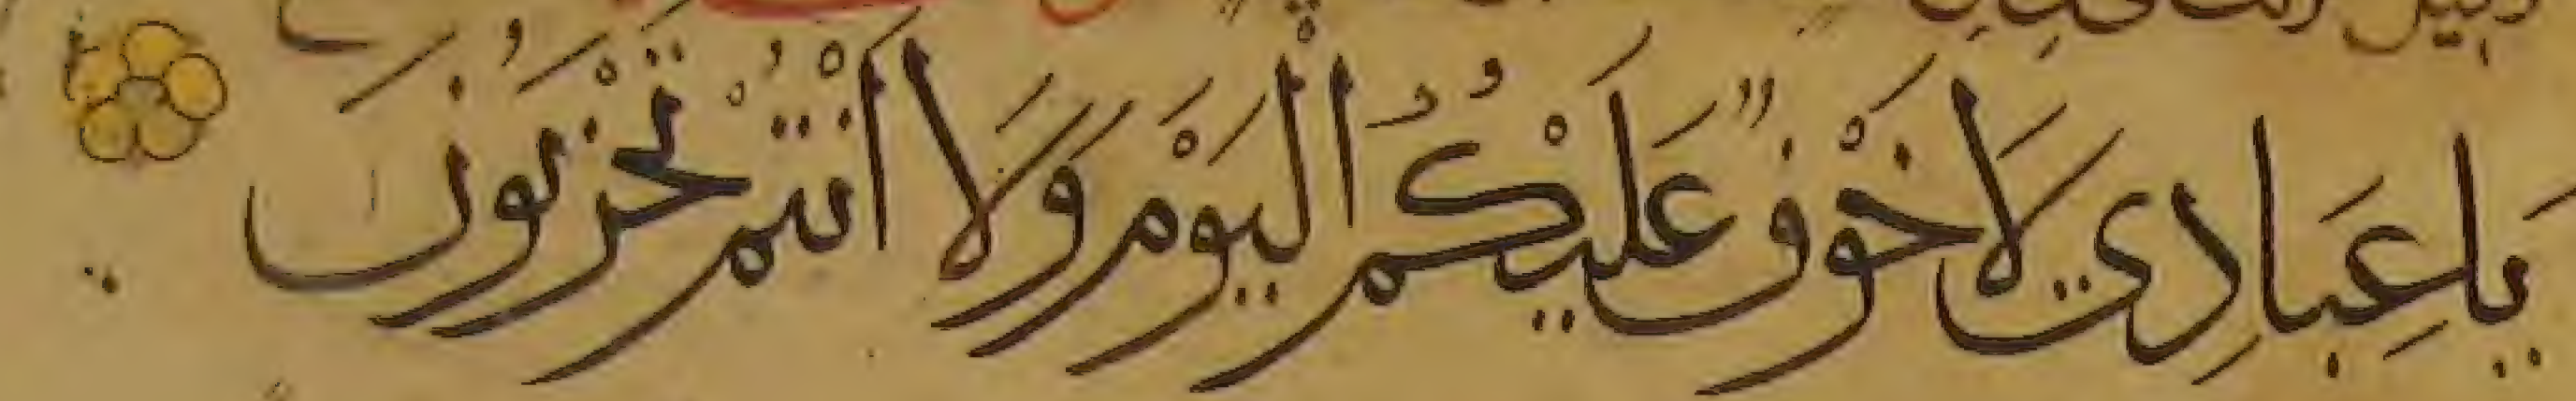 يا عِبَادِي لَا خَوْفٌ عَلَيْكُمُ الْيَوْمَ وَلَا أَنْتُمْ تَحْزَنُونَ